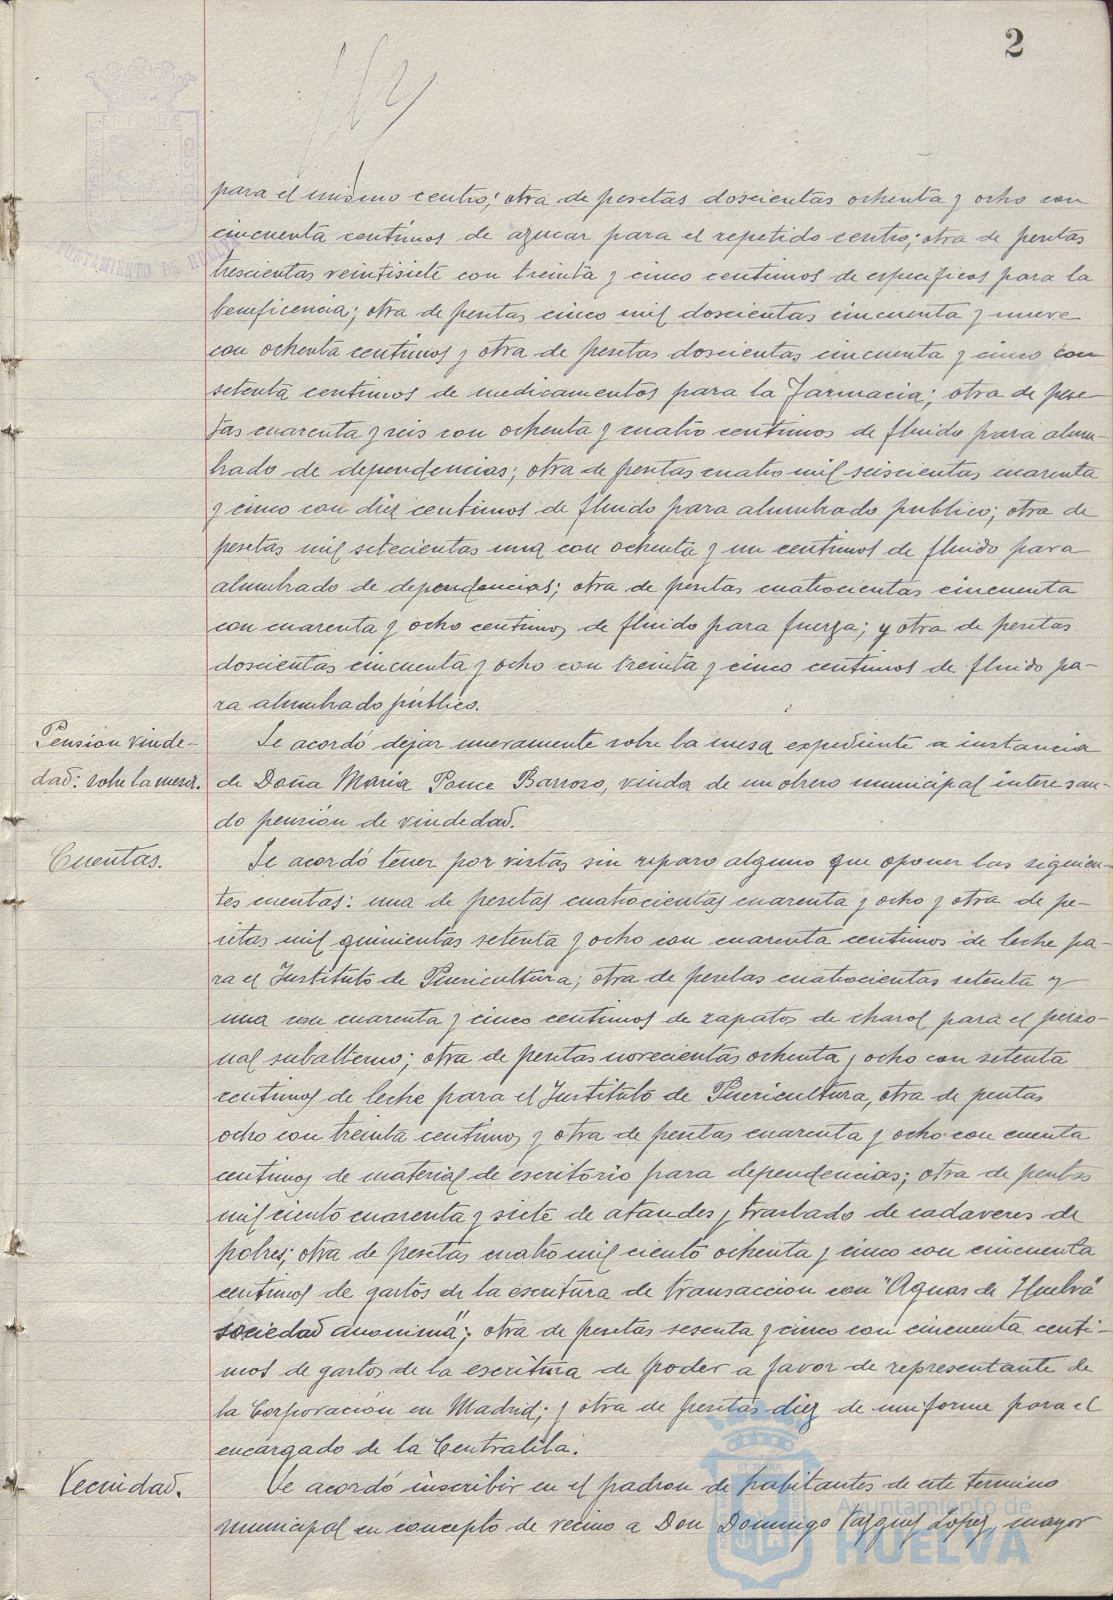 2
para el mismo centro; otra de pesetas doscientas ochenta y ocho con
cincuenta centimos de azucar para el repetido centro; otra de pesetas
trescientas veintisiete con treinta y cinco centimos de especificos para la
beneficencia; otra de pesetas cinco mil doscientas cincuenta y nueve
con ochenta centimos y otra de pesetas doscientas cincuenta y cinco con
setenta centimos de medicamentos para la Farmacia; otra de pese-
tas cuarenta y seis con ochenta y cuatro centimos de fluido para alum-
brado de dependencias; otra de pesetas cuatro mil seiscientas cuarenta
y cinco con diez centimos de fluido para alumbrado publico; otra de
pesetas mil setecientas una con ochenta y un centimos de fluido para
alumbrado de dependencias; otra de pesetas cuatrocientas cincuenta
con cuarenta y ocho centimos de fluido para fuerza; y otra de pesetas
doscientas cincuenta y ocho con treinta y cinco centimos de fluido pa-
ra alumbrado público.
Pensión viude-
dad: sobre la mesa.
Se acordó dejar nuevamente sobre la mesa expediente a instancia
de Doña Maria Ponce Barroso, viuda de un obrero municipal interesan-
do pensión de viudedad.
Cuentas.
Se acordó tener por vistas sin reparo alguno que oponer las siguien-
tes cuentas: una de pesetas cuatrocientas cuarenta y ocho y otra de pe-
setas mil quinientas setenta y ocho con cuarenta centimos de leche pa-
ra el Instituto de Puericultura; otra de pesetas cuatrocientas setenta y
una con cuarenta y cinco centimos de zapatos de charol para el perso-
nal subalterno; otra de pesetas novecientas ochenta y ocho con setenta
centimos de leche para el Instituto de Puericultura, otra de pesetas
ocho con treinta centimos y otra de pesetas cuarenta y ocho con
centimos de material de escritorio para dependencias; otra de pesetas
mil ciento cuarenta y siete de ataudes y traslado de cadaveres de
pobres; otra de pesetas cuatro mil ciento ochenta y cinco con cincuenta
centimos de gastos de la escritura de transaccion con "Aguas de Huelva"
sociedad anonima"; otra de pesetas sesenta y cinco con cincuenta centi-
mos de gastos de la escritura de poder a favor de representante de
la Corporación en Madrid; y otra de pesetas diez de uniforme para el
encargado de la Centralilla.
Vecindad.
Se acordó inscribir en el padron de habitantes de este termino
municipal en concepto de vecino a Don Domingo Vazquez Lopez, mayor
Ayuntamiento de
HUELVA